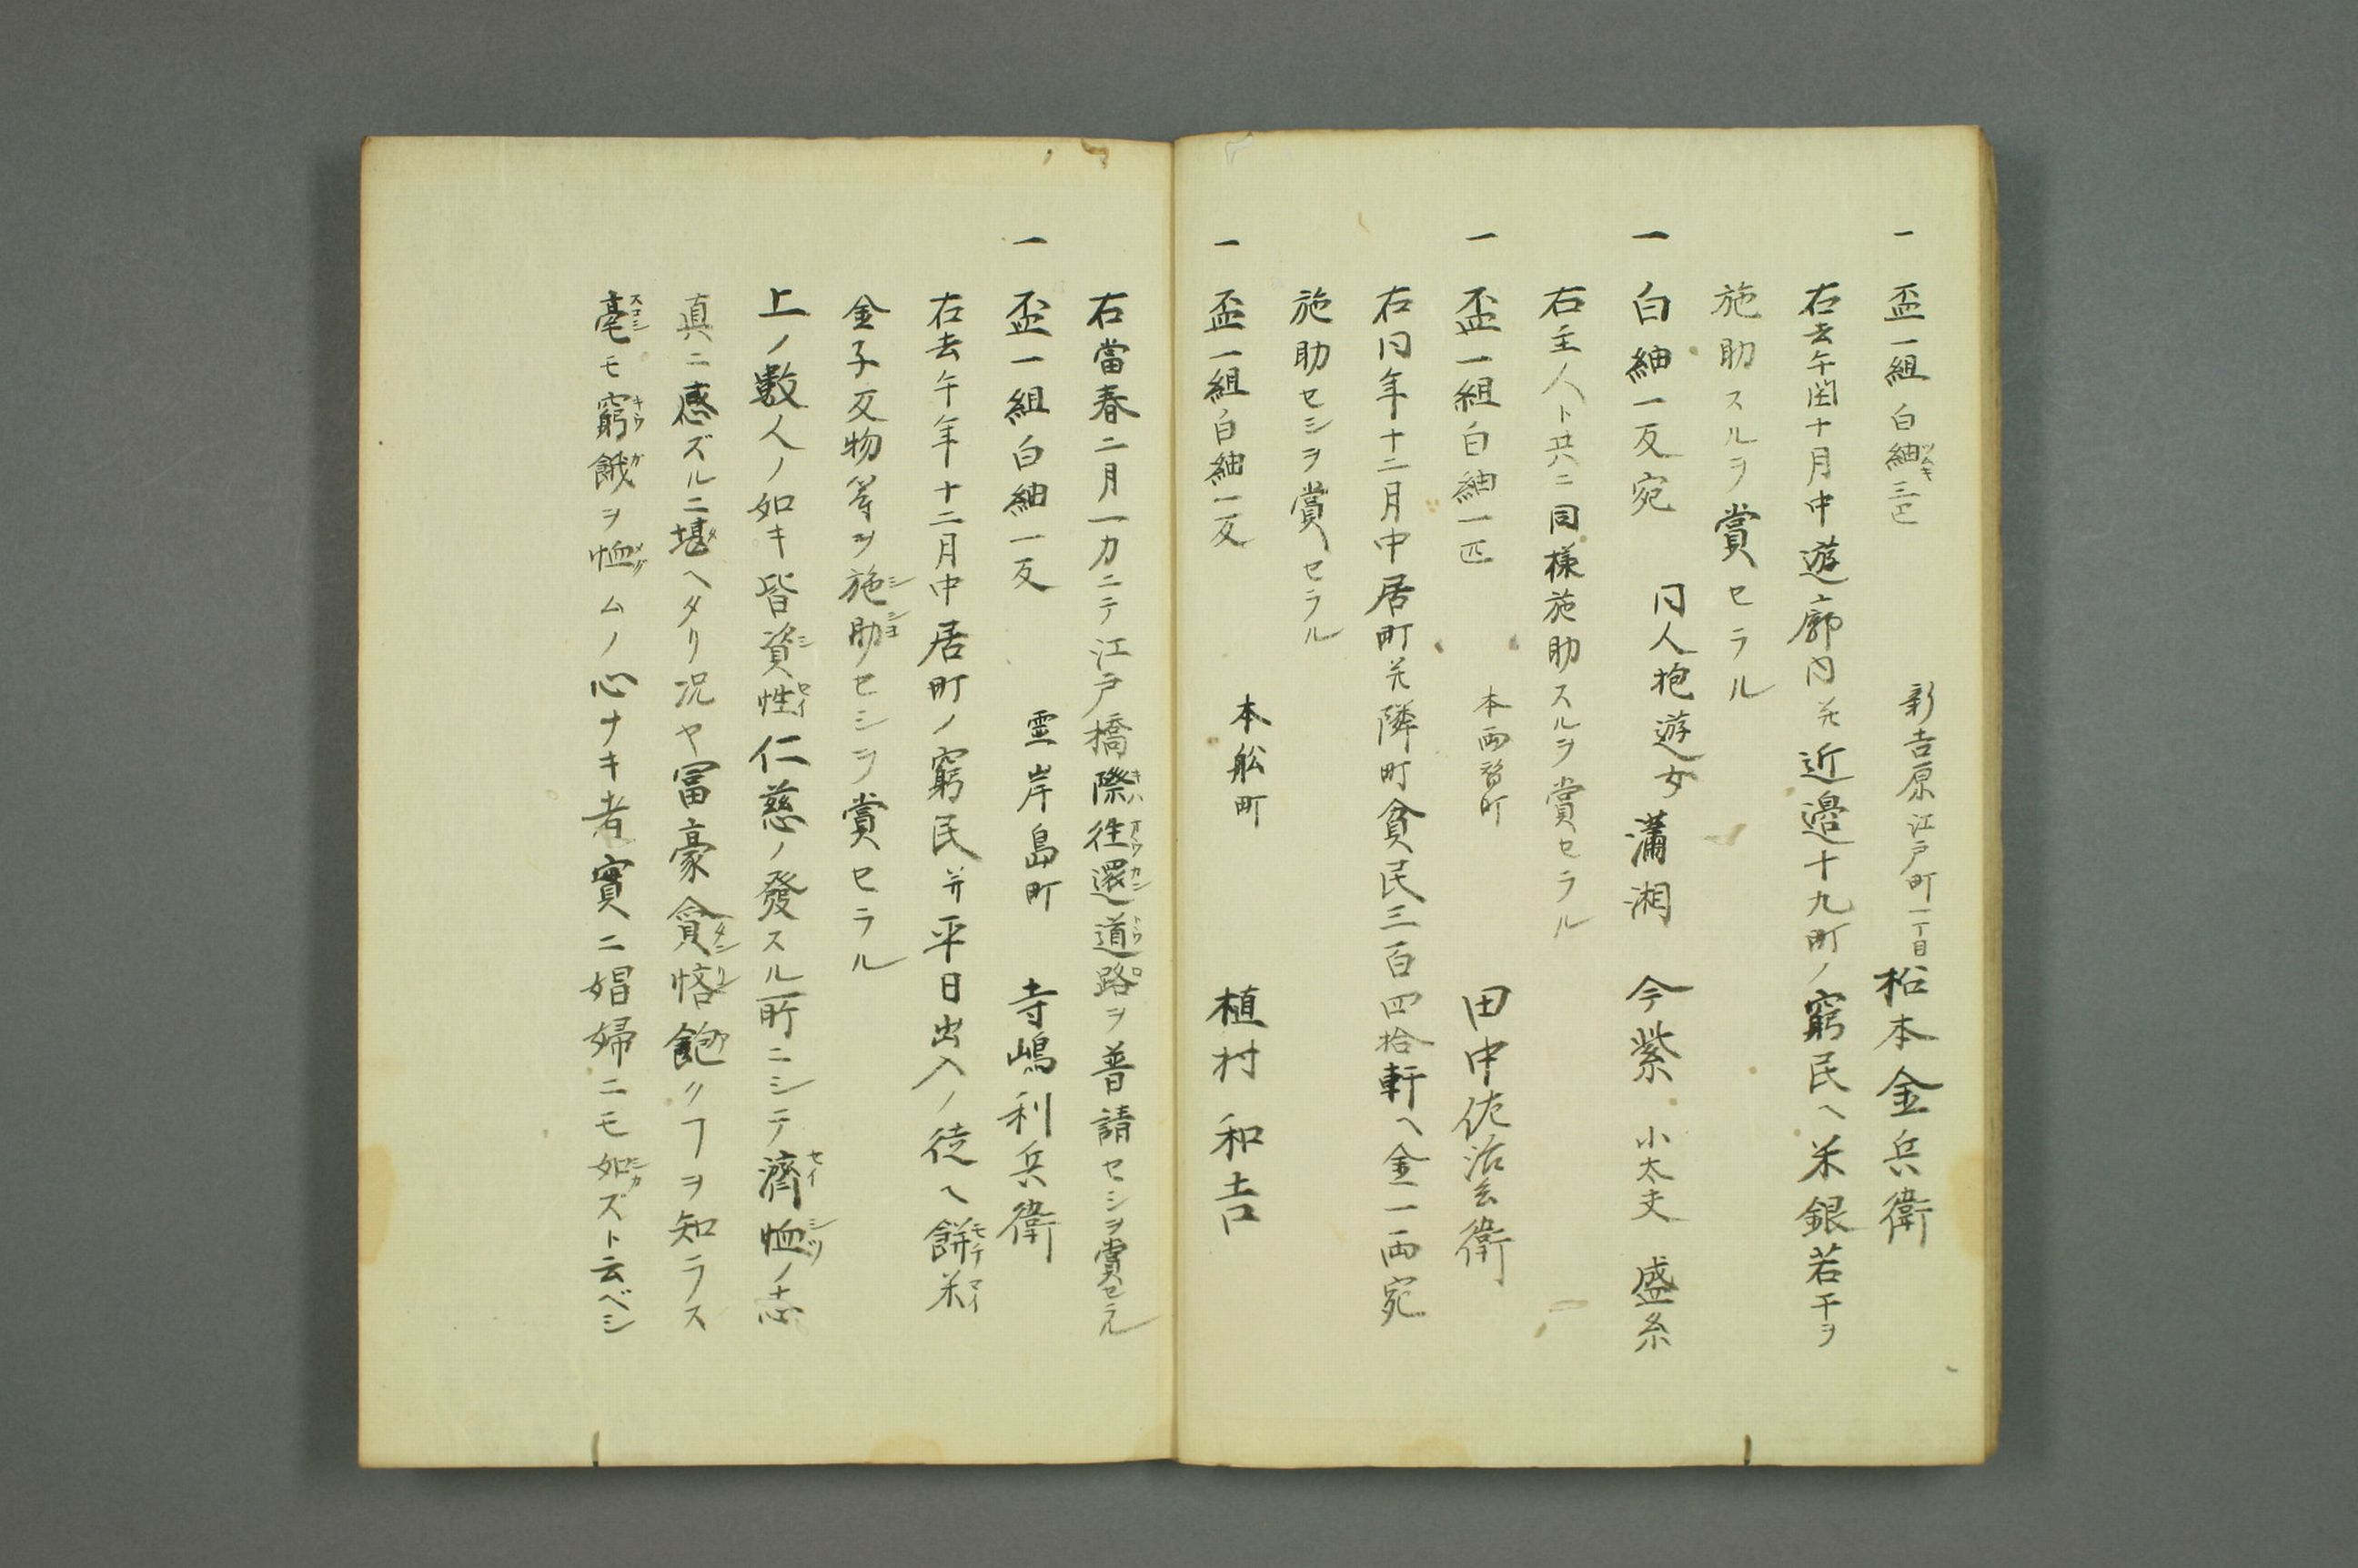 一 盃一組 白紬三疋 新吉原江戸町一丁目 松本金兵衛
右去午閏十月中遊廓内并近邉十九町ノ窮民ヘ米銀若干ヲ
施助スルヲ賞セラル
一 白紬一反宛 同人抱遊女 瀟湘 今紫 小太夫 盛糸
右主人ト共ニ同様施助スルヲ賞セラル
一 盃一組白紬一匹 本両替町 田中佐治兵衛
右同年十二月中居町并隣町貧民三百四拾軒ヘ金一両宛
施助セシヲ賞セラル
一 盃一組白紬一反 本舩町 植村和吉
右當春二月一力ニテ江戸橋際徃還道路ヲ普請セシヲ賞セラル
一 盃一組白紬一反 霊岸島町 寺嶋利兵衛
右去午年十二月中居町ノ窮民并平日出入ノ徒ヘ餅米
金子反物等ヲ施助セシヲ賞セラル
上ノ數人ノ如キ皆資性仁慈ノ發スル所ニシテ濟恤ノ志
真ニ感ズルニ堪ヘタリ况ヤ冨豪貪悋飽クヿヲ知ラス
毫モ窮餓ヲ恤ムノ心ナキ者實ニ娼婦ニモ如ズト云ベシ